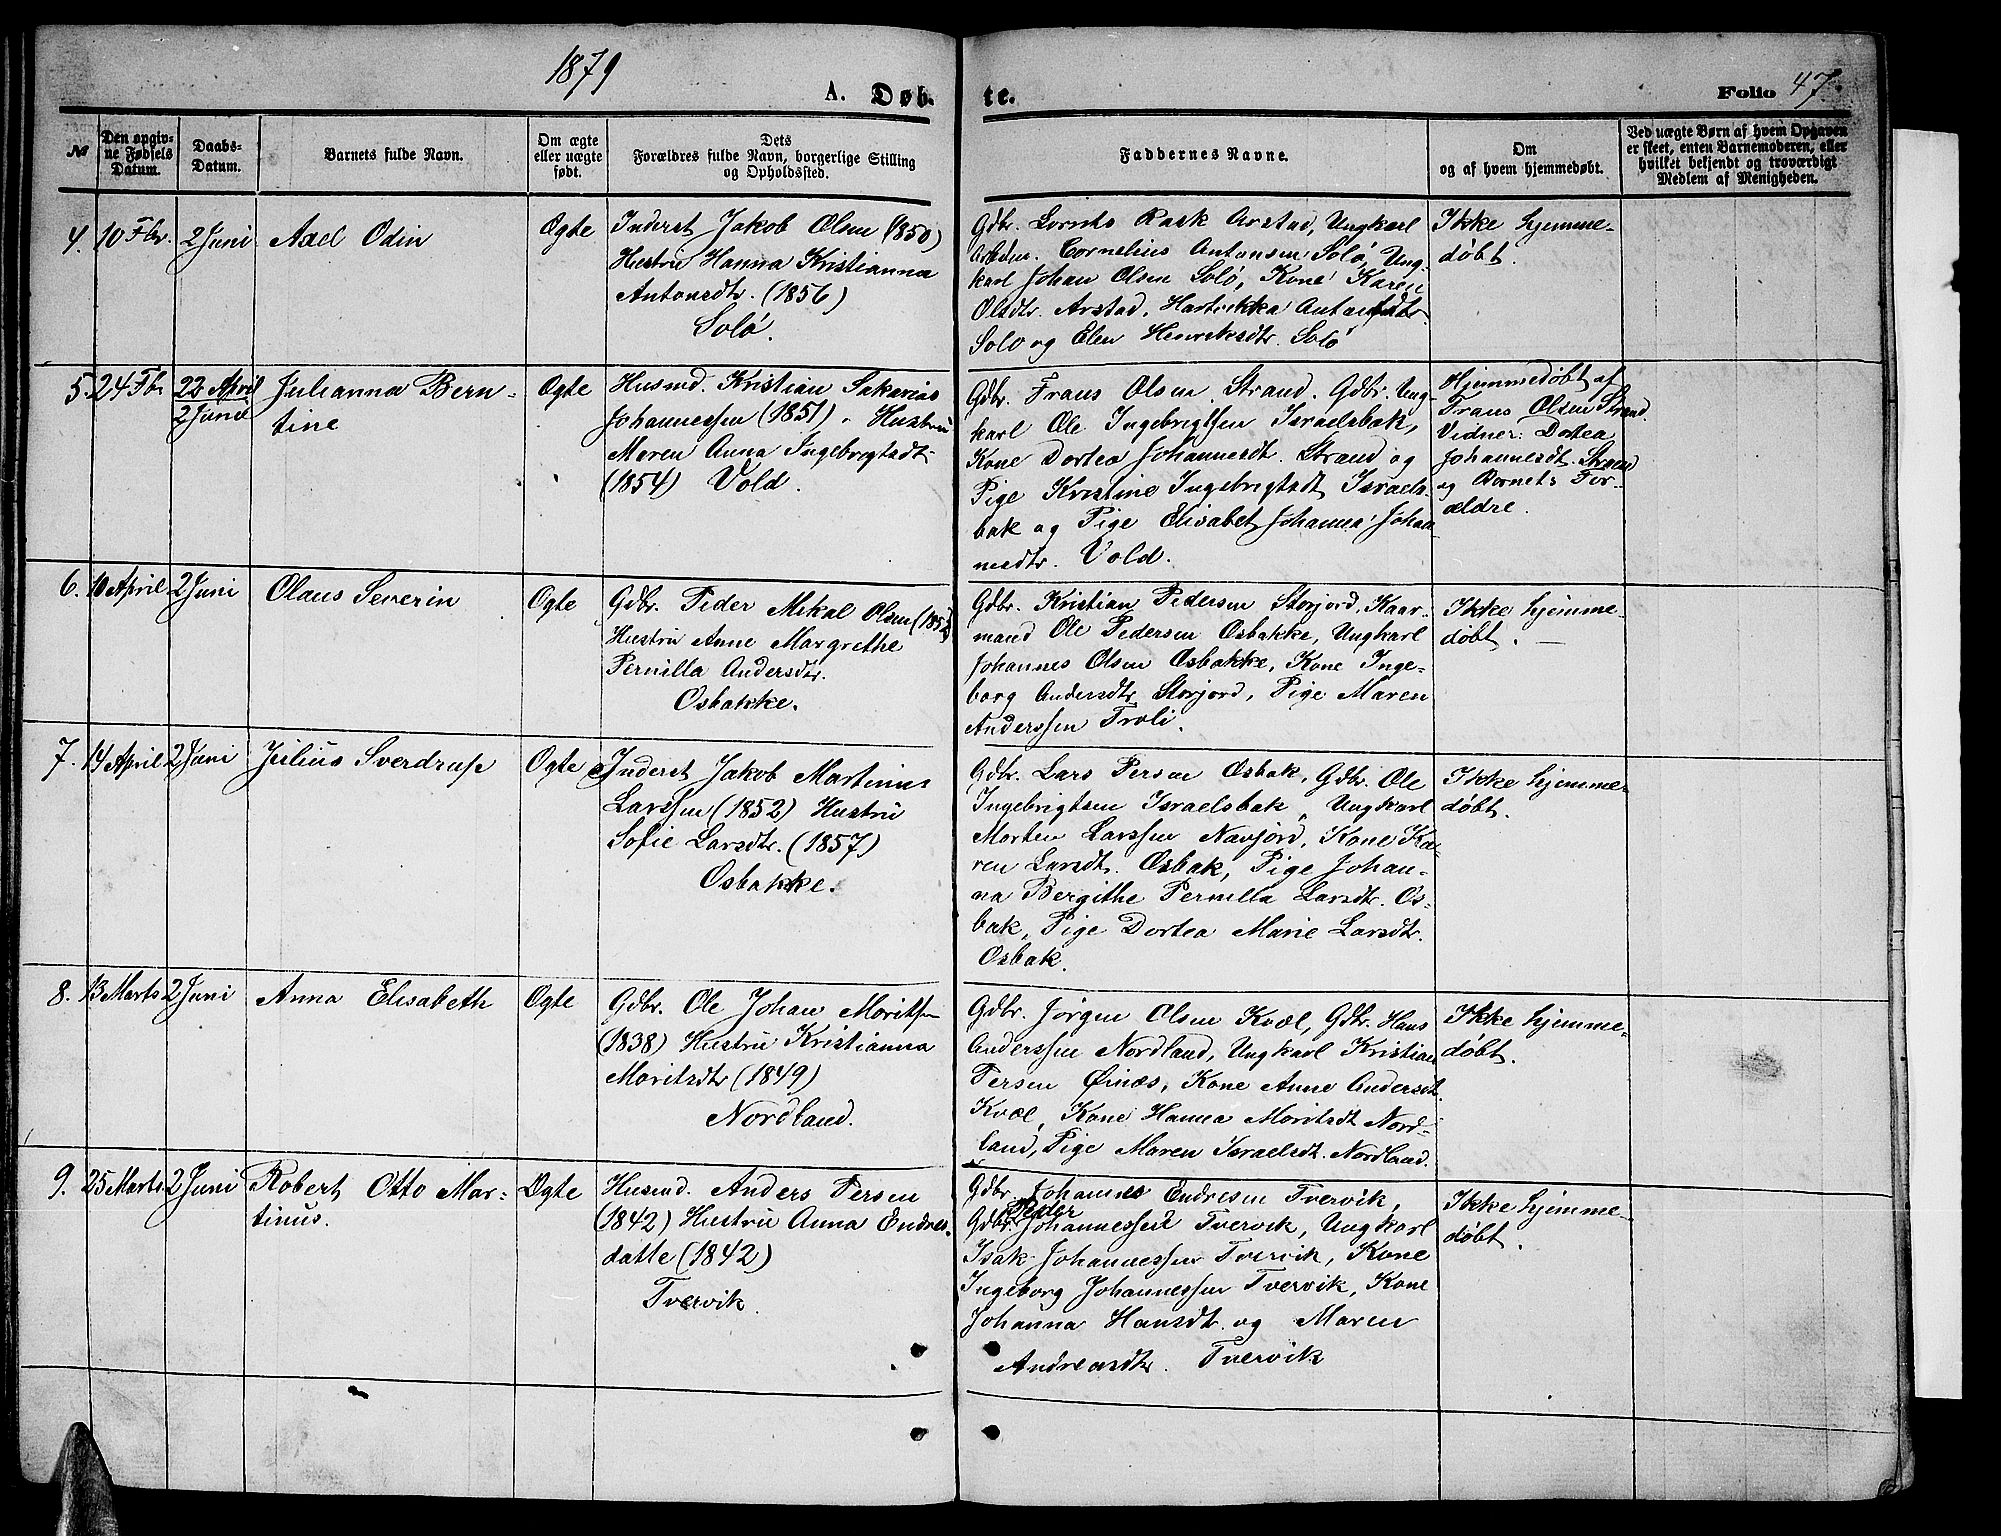 1879
A. Døb-
te.
Folio 47.
No
Den opgiv-
ne Fødsels
Datum.
Daabs-
Datum.
Barnets fulde Navn.
Om ægte
eller uægte
født.
Dets
Forældres fulde Navn, borgerlige Stilling
og Opholdssted.
Faddernes Navne.
Om
og af hvem hjemmedøbt.
Ved uægte Børn af hvem Opgaven
er skeet, enten Barnemoderen, eller
hvilket bekjendt og troværdigt
Medlem af Menigheden.
4. 10 Fbr. 2 Juni Axel Odin Ogte
Inderst Jakob Olsen (1850)
Hustru Hanna Kristianna
Antonsdtr. (1856)
Solø.
Gdbr. Lornts Rask Arstad, Ungkarl
Cornelius Antonsen Solø, Ung-
karl Johan Olsen Solø, Kone Karen
Olsdtr. Arstad, Hartvikka Antonsdtr.
Solø og Elen Henriksdtr. Solø
Ikke hjemme-
døbt.
5. 24 Fbr 22 April
2 Junii
Julianna Bern-
tine
Ogte
Husmd. Kristian Sakarias
Johannessen (1851). Hustru
Maren Anna Ingebrigtsdt.
(1854) Vold.
Gdbr. Frans Olsen Strand. Gdbr. Ung-
karl Ole Ingebrigtsen Israelsbak,
Kone Dortea Johannesdt. Strand og
Pige Kristine Ingebrigtsdt Israels-
bak og Pige Elisabet Johanna Johan-
nesdtr. Vold.
Hjemmedøbt af
Frans Olsen Strand.
Vidner: Dortea
Johannesdt. Strand
og Barnets For-
ældre.
6. 10 April 2 Juni Olaus Severin Ogte
Gdbr. Peder Mikal Olsen
Hustru Anne Margrethe
Pernilla Andersdtr.
Osbakke.
Gdbr. Kristian Pedersen Storjord, Kaar-
mand Ole Pedersen Osbakke, Ungkarl
Johannes Olsen Osbakke, Kone Inge-
borg Andersdtr Storjord, Pige Maren
Anderssen Troli.
Ikke hjemme-
døbt. —
7. 14 April 2 Juni Julius Sverdrup Ogte
Inderst Jakob Martinus
Larssen (1852) Hustru
Sofie Larsdtr. (1857)
Osbakke.
Gdbr. Lars Persen Osbak, Gdbr. Ole
Ingebrigtsen Israelsbak, Ungkarl
Morten Larssen Navjord, Kone Ka-
ren Larsdt. Osbak, Pige Johan-
na Bergithe Pernilla Larsdtr. Os-
bak, Pige Dortea Marie Larsdtr.
Osbak.
Ikke hjemme-
døbt.
8. 13 Marts 2 Juni Anna Elisabeth Ogte
Gdbr. Ole Johan Moritsen
(1838) Hustru Kristianna
Moritsdtr (1849)
Nordland.
Gdbr. Jørgen Olsen Kvæl, Gdbr. Hans
Anderssen Nordland, Ungkarl Kristian
Persen Øinæs, Kone Anne Andersdt.
Kvæl, Kone Hanna Moritsdt Nord-
land, Pige Maren Israelsdt. Nordland.
Ikke hjemme-
døbt.
9. 25 Marts 2 Juni Robert Otto Mar-
tinus.
Ogte
Husmd. Anders Persen
(1842) Hustru Anna Endres-
datte (1842)
Tvervik.
Gdbr. Johannes Endresen Tvervik,
Peder
Gdbr. Johannessen Tvervik, Ungkarl
Isak Johannessen Tvervik, Kone
Ingeborg Johannessen Tvervik, Kone
Johanna Hansdt. og Maren
Andreasdtr. Tvervik
Ikke hjemme-
døbt.